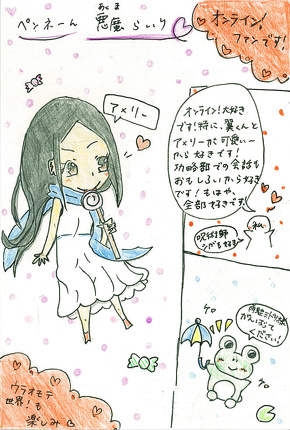 ペンネーム 悪魔らいり
あくま
オンライン!
ファンです!
アメリー
オンライン!大好き
です!特に、翼くんと
アメリーが可愛い
から好きです!
攻略部での会話も
おもしろいから好き
です!もはや、
全部好きです!
私
ケロ
がんばって
ください!
ケロ
ウラオモテ
世界!も
楽しみ